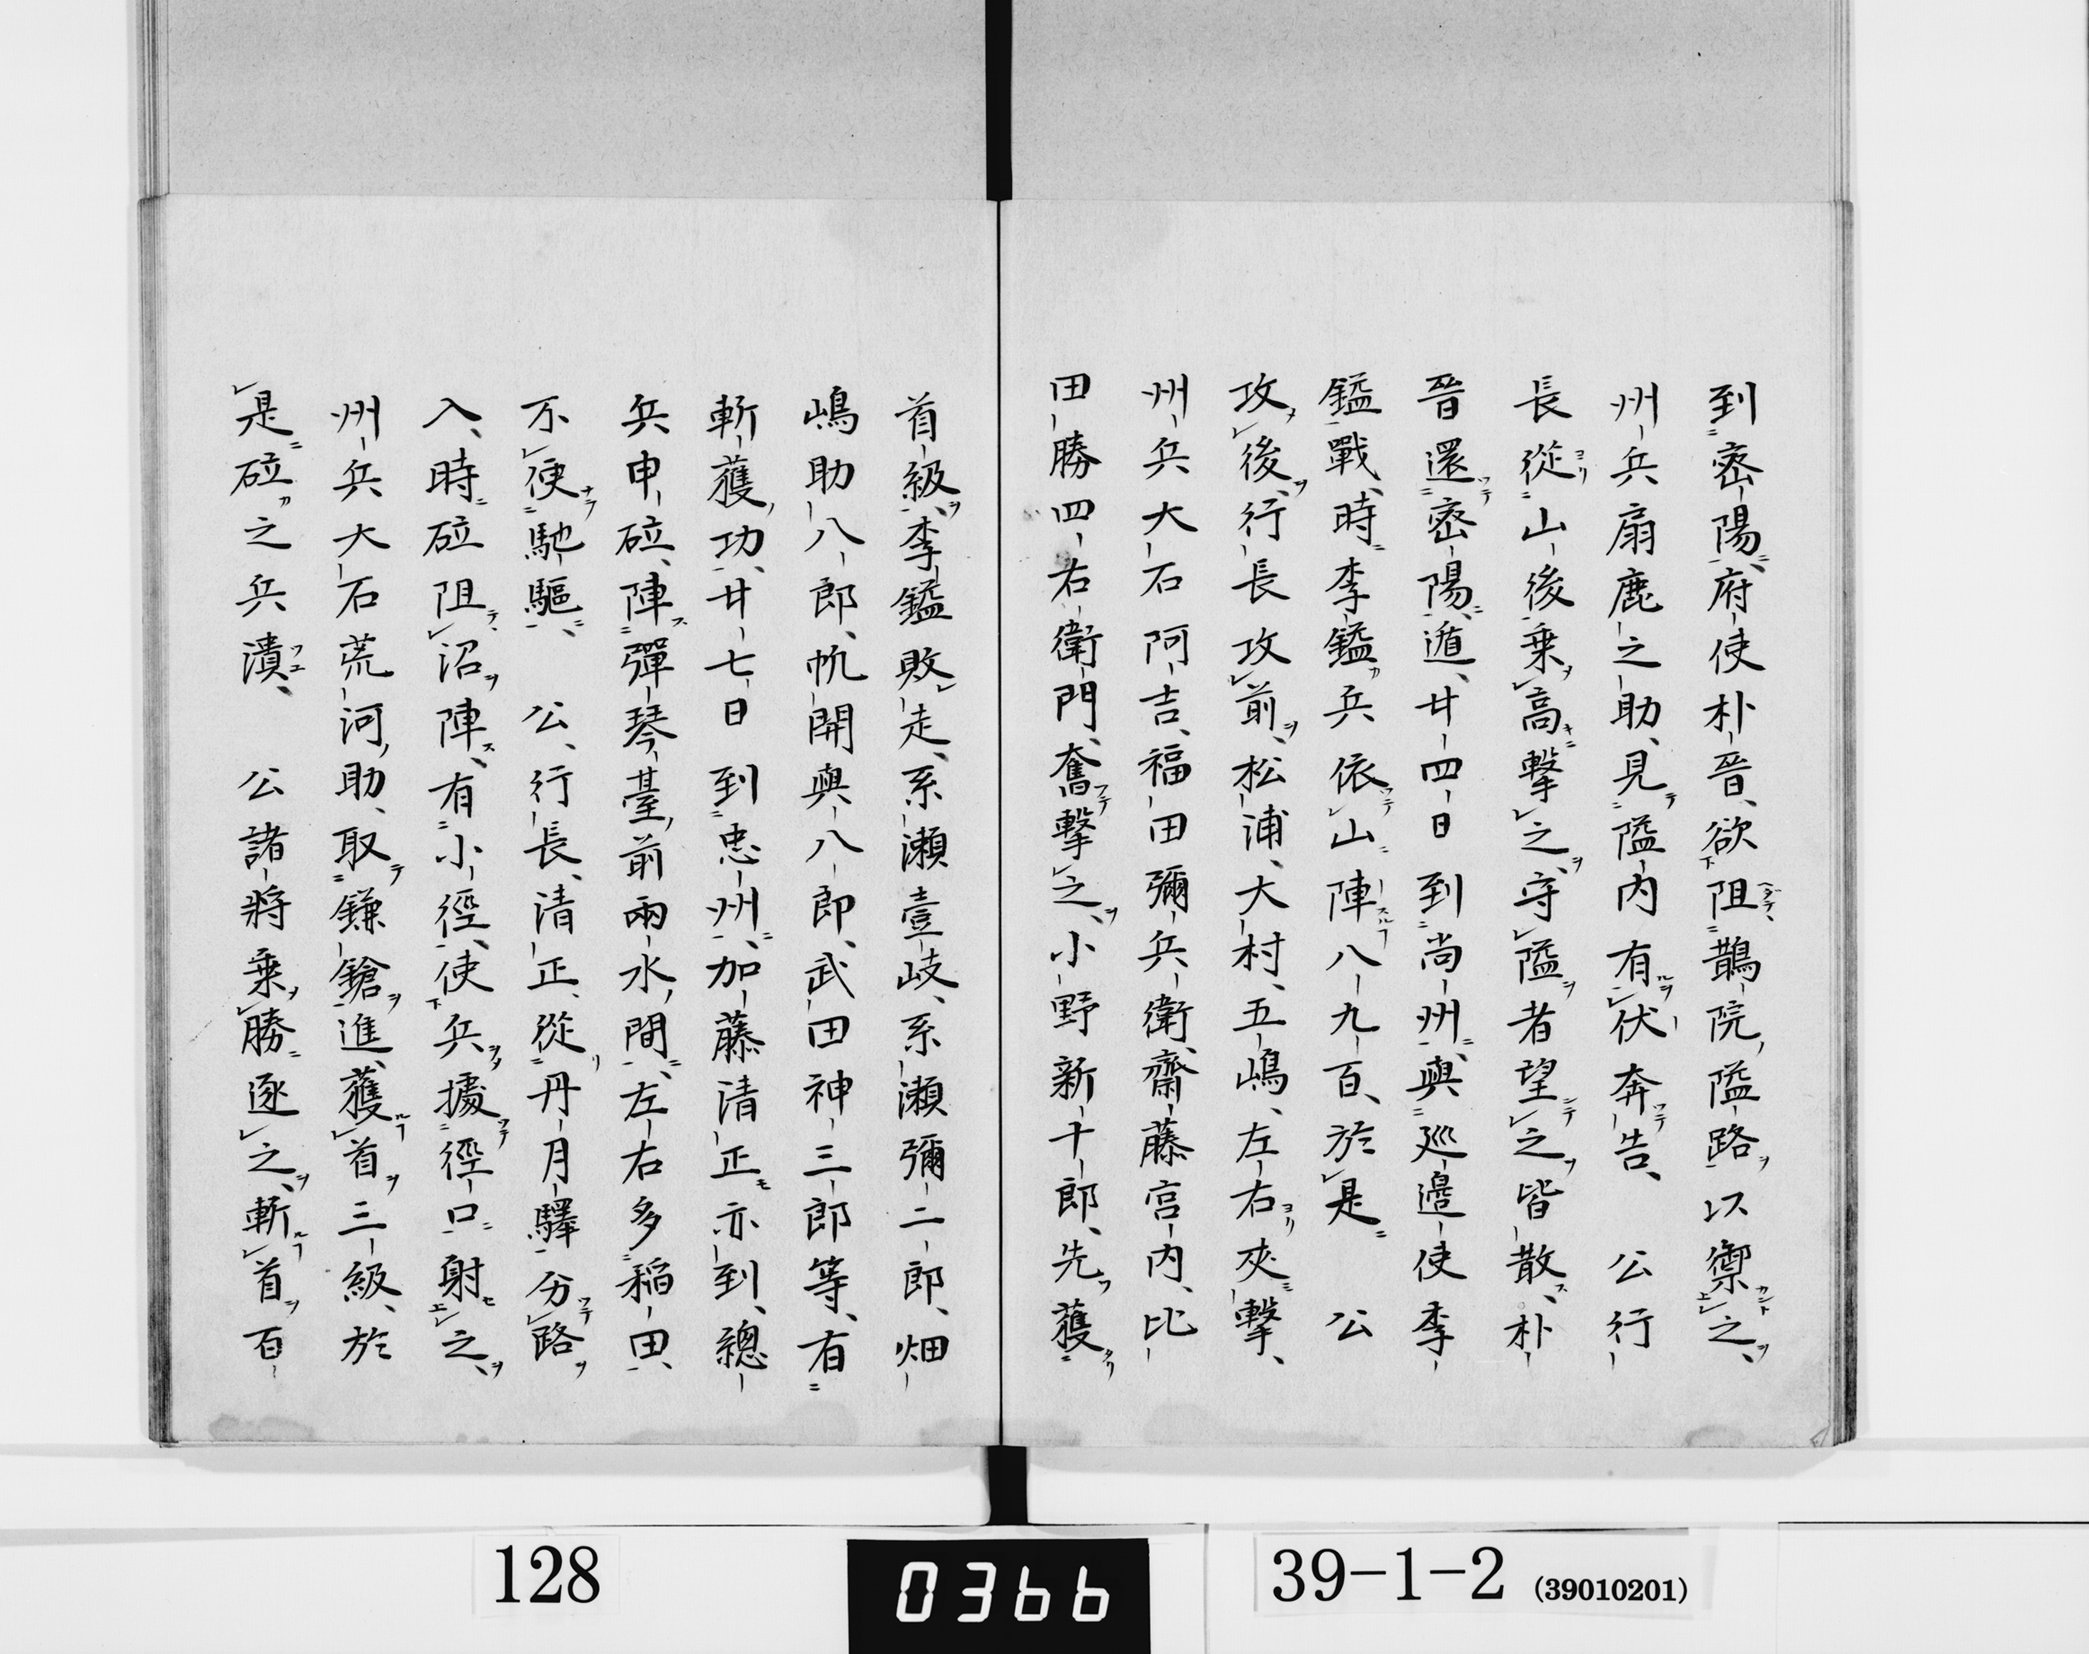 到密陽府使朴晉、欲阻鵲院隘路以禦之、
州兵扇鹿之助、見隘内有伏奔告、　公行
長從山後乗高撃之、守隘者望之皆散、朴
晉還密陽遁、廿四日到尚州、與巡邊使李
鎰戰、時李鎰兵依山陣八九百、於是　公
攻後、行長攻前、松浦、大村、五嶋、左右夾撃、
州兵大石阿吉、福田彌兵衛、齋藤宮内、比
田勝四右衛門、奮撃之、小野新十郎、先獲
首級、李鎰敗走、系瀬壹岐、系瀬彌二郎、畑
嶋助八郎、帆開與八郎、武田神三郎等、有
斬獲功、廿七日到忠州、加藤清正亦到、總
兵申砬、陣彈琴臺前兩水間、左右多稲田、
不便馳驅、　公、行長、清正、從丹月驛分路
入、時砬阻沼陣、有小徑、使兵據徑口射之、
州兵大石荒河助、取鎌鎗進、獲首三級、於
是砬之兵潰、　公諸將乗勝逐之、斬首百
128
0366
39-1-2 (39010201)